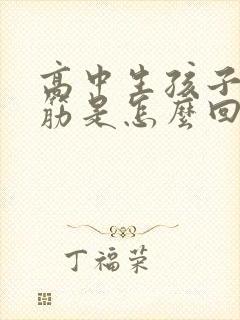 高中生孩子
筋是怎麼回
丁福荣